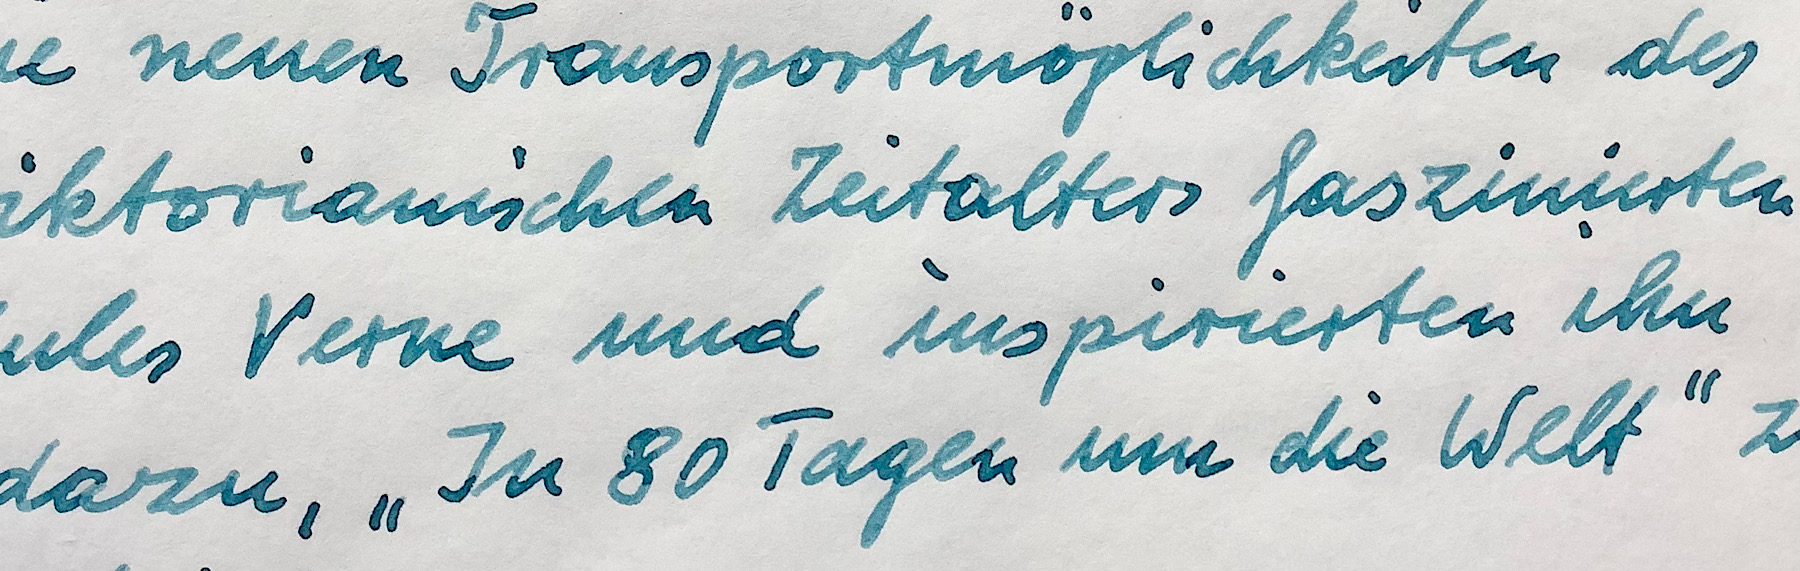 neuen Transportmöglichkeiten des
iktorianischen Zeitalters faszinierten
ules Verne und inspirierten ihn
dazu, „In 80 Tagen um die Welt" z